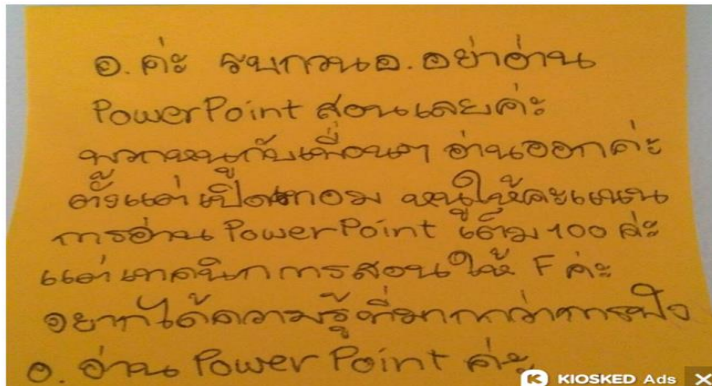 อ. ค่ะ รบกวนอ. อย่าอ่าน
PowerPoint สอนเลยค่ะ
พวกหนูกับเพื่อนๆ อ่านออกค่ะ
ตั้งแต่เปิดเทอม หนูให้คะแนน
การอ่าน PowerPoint เต็ม 100 ค่ะ
แต่เทคนิกการสอนให้ F ค่ะ
อยากได้ความรู้ที่มากกว่าการฟัง
อ. อ่าน Power Point ค่ะ
KIOSKED Ads X